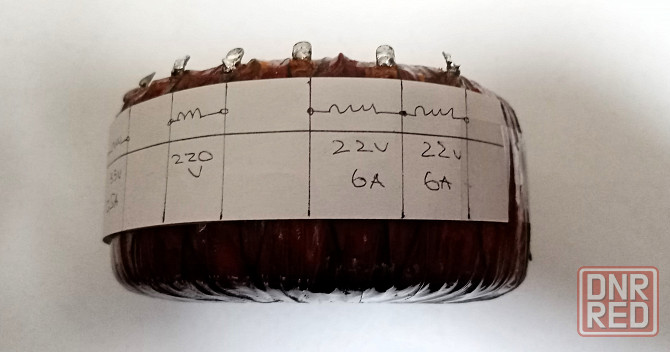 220
V
22V
6A
22V
6A
DNR
RED